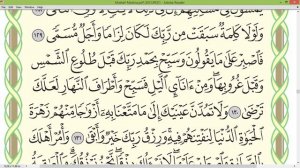 Mushaf Madina.pdf (SECURED) - Adobe Reader
وَلَوْلَا كَلِمَةٌ سَبَقَتْ مِن رَّبِّكَ لَكَانَ لِزَامًا وَأَجَلٌ مُّسَمًّى ١٢٩
فَٱصْبِرْ عَلَىٰ مَا يَقُولُونَ وَسَبِّحْ بِحَمْدِ رَبِّكَ قَبْلَ طُلُوعِ ٱلشَّمْسِ
وَقَبْلَ غُرُوبِهَا ۖ وَمِنْ ءَانَآئِ ٱلَّيْلِ فَسَبِّحْ وَأَطْرَافَ ٱلنَّهَارِ لَعَلَّكَ
تَرْضَىٰ ١٣٠ وَلَا تَمُدَّنَّ عَيْنَيْكَ إِلَىٰ مَا مَتَّعْنَا بِهِۦٓ أَزْوَٰجًا مِّنْهُمْ زَهْرَةَ
ٱلْحَيَوٰةِ ٱلدُّنْيَا لِنَفْتِنَهُمْ فِيهِ ۚ وَرِزْقُ رَبِّكَ خَيْرٌ وَأَبْقَىٰ ١٣١ وَأْمُرْ أَهْلَكَ